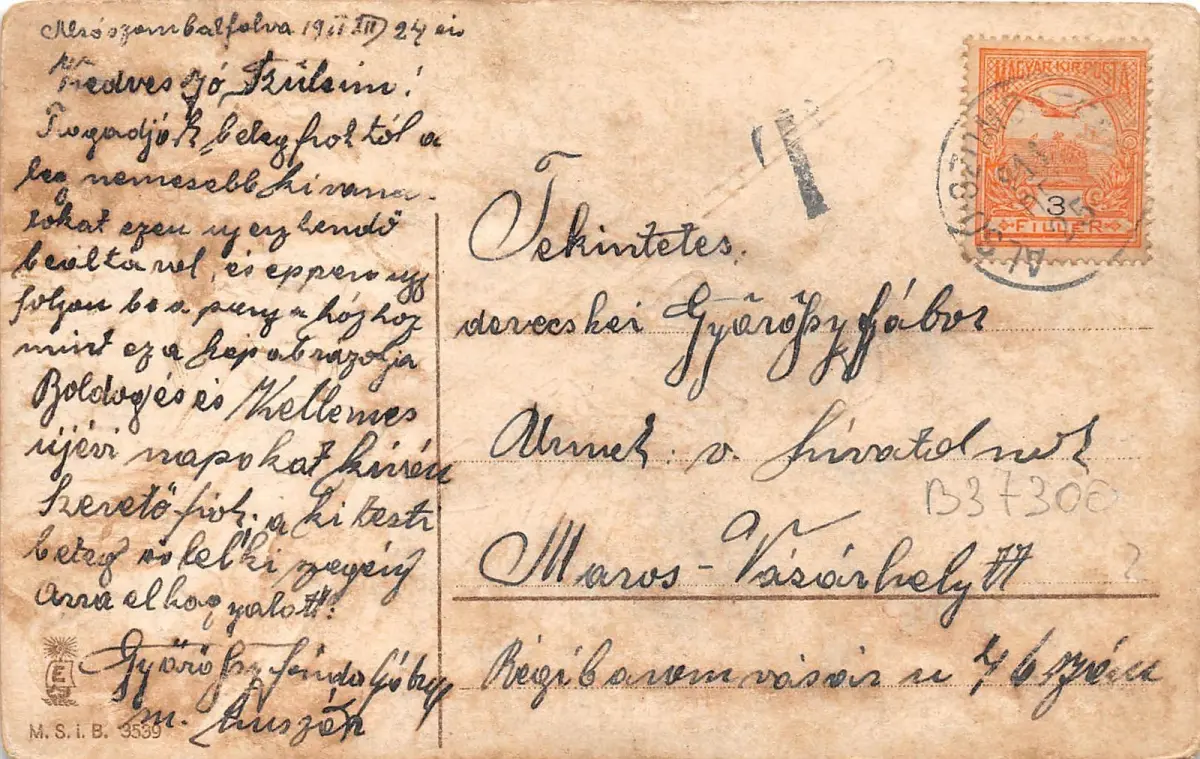 Alsószombatfalva 1911 XII 24 én
Kedves Jó Szüleim!
Fogadják beteg fioktól a
leg nemesebb kivana-
tokat ezen uj eszhendő
beálltával, és eppen ugy
folyon be a pénz a házhoz
mint ez a kép abrazolja
Boldog és és Kellemes
újévi napokat kiván
Szerető fiok. a ki testi
beteg és lelki szegény
Arra elhagyatott:
Györffy Gábor
m. huszár
M. S. i. B. 3539
MAGYAR KIR. POSTA
3
FILLÉR
T
Tekintetes
derecskei Györffy Gábor
v. hivatalnok
B37300
Maros-Vásárhelytt
Régibaromvásár u 46 szám